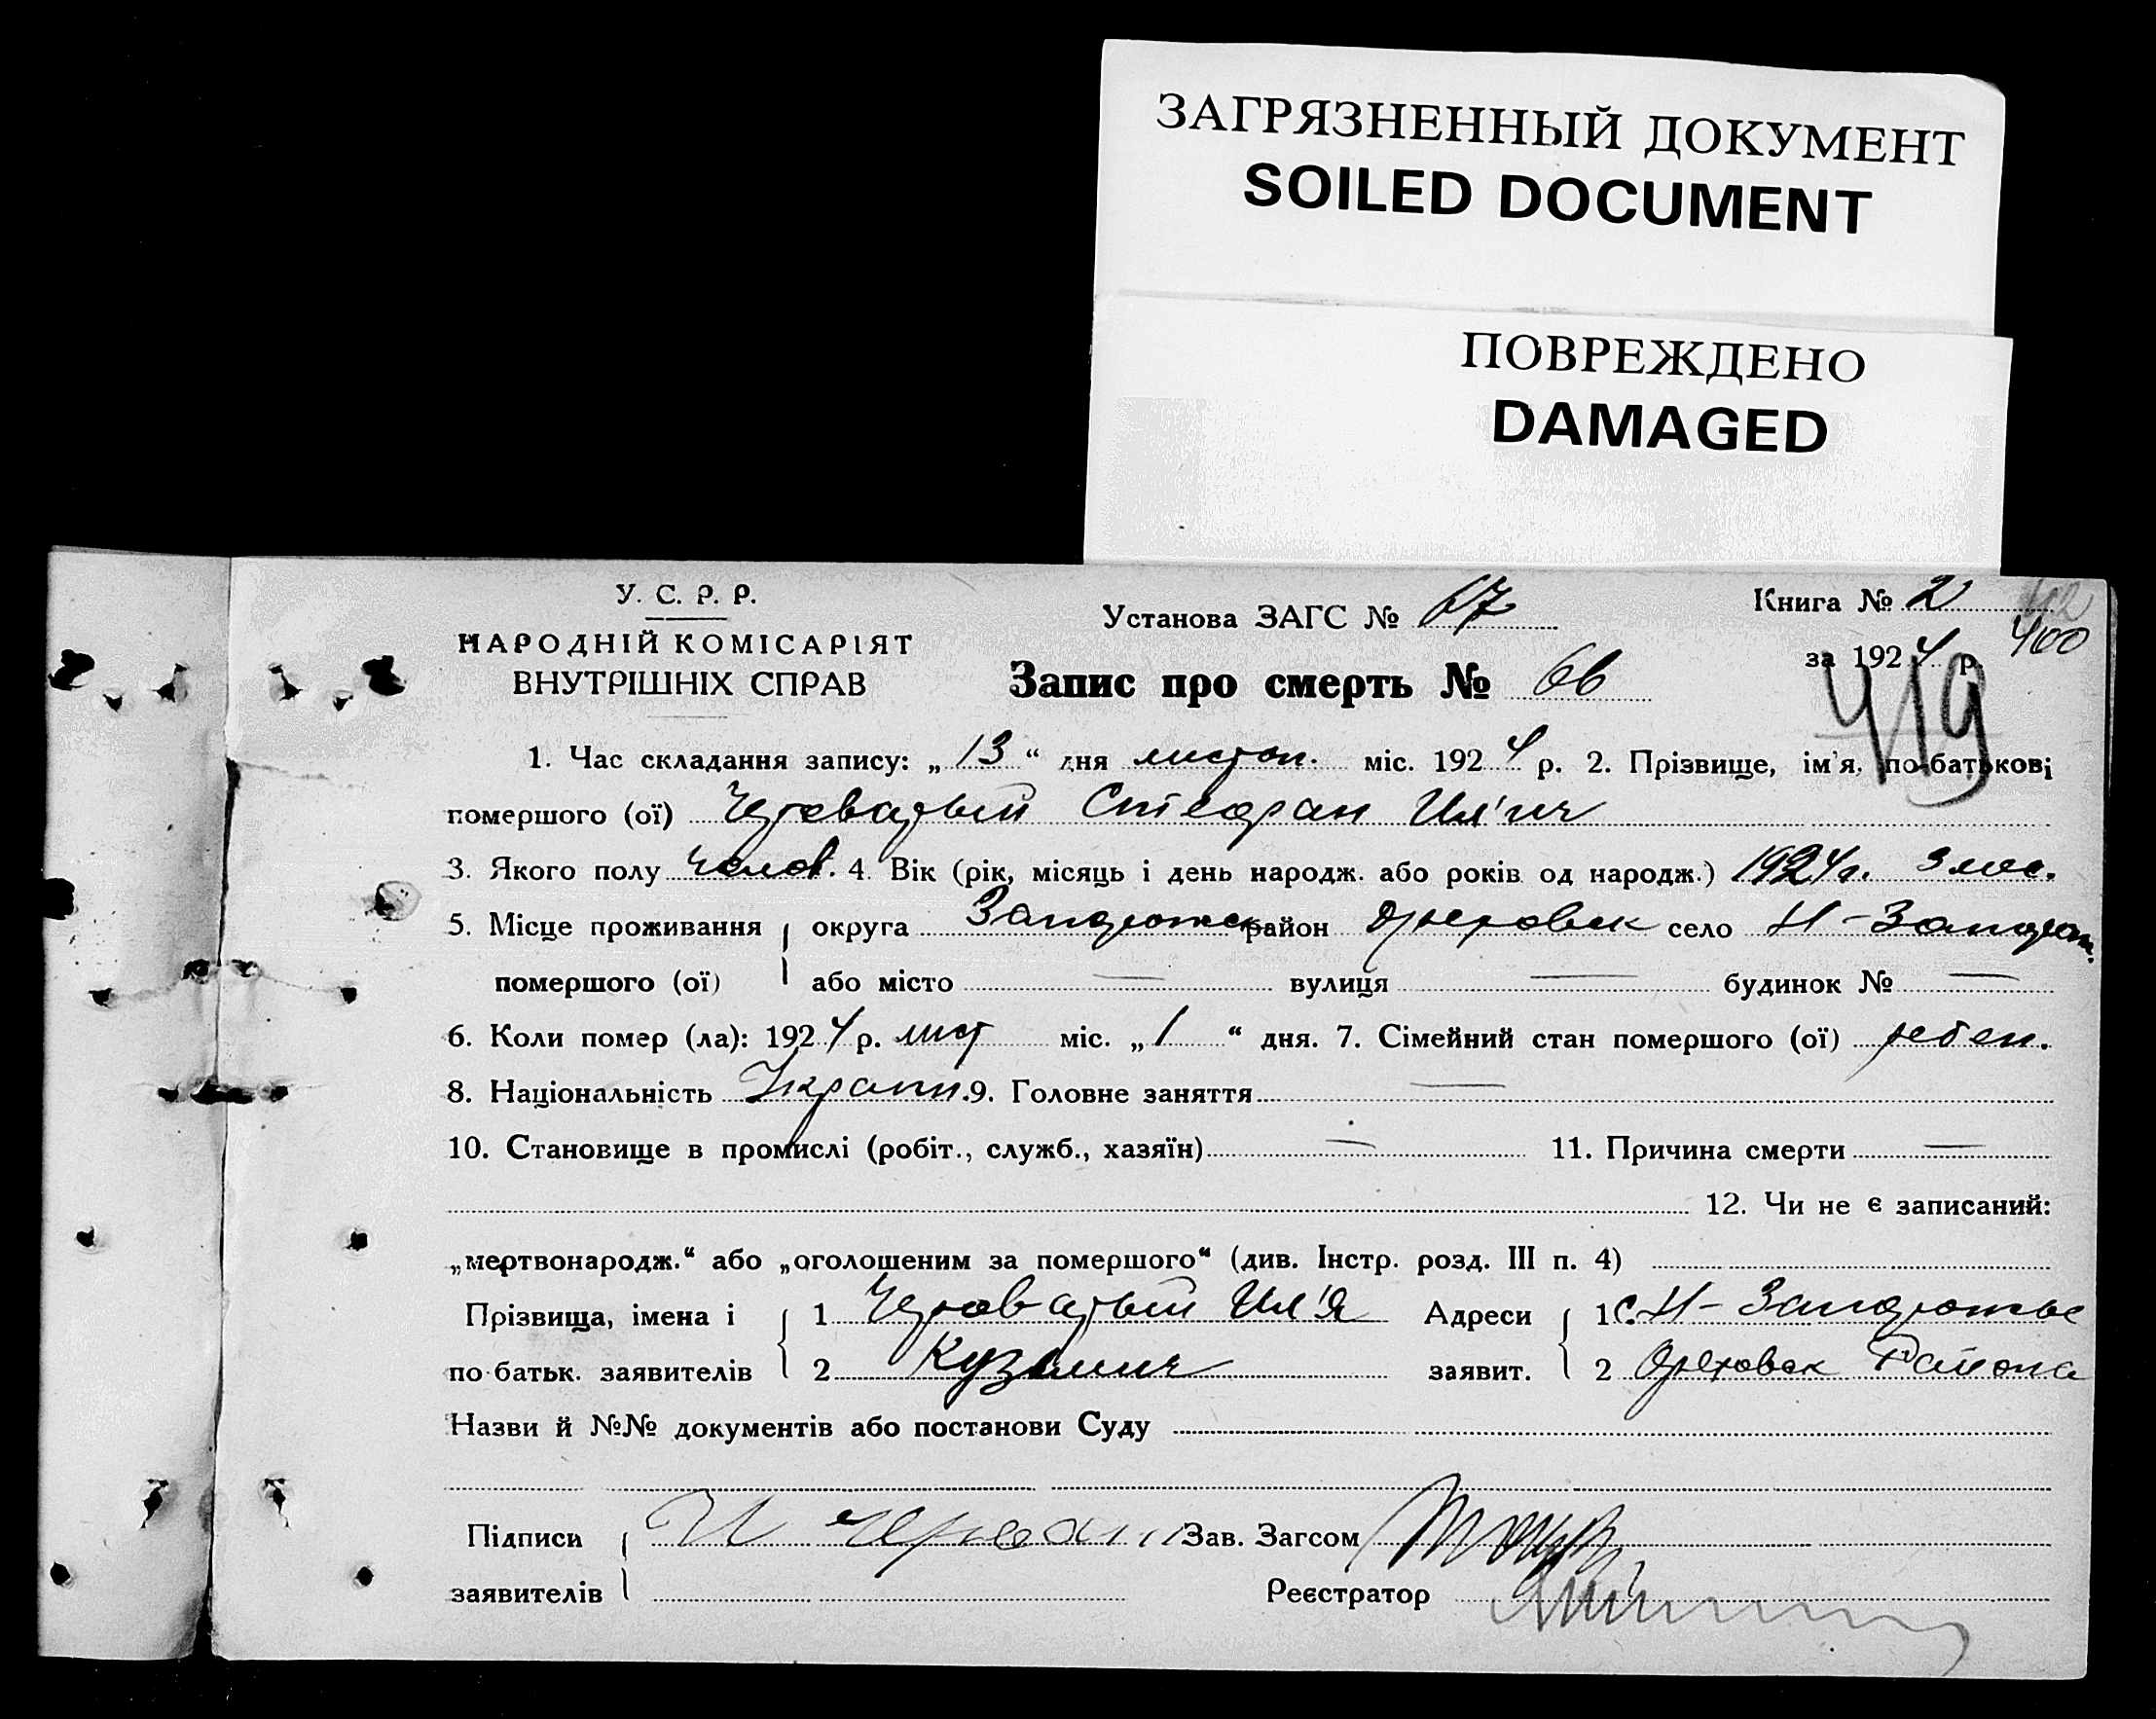 ЗАГРЯЗНЕННЫЙ ДОКУМЕНТ
SOILED DOCUMENT
ПОВРЕЖДЕНО
DAMAGED
У. С. Р. Р.
НАРОДНІЙ КОМІСАРІЯТ
ВНУТРІШНІХ СПРАВ
Установа ЗАГС № 67
Книга № 2
400
за 1924 р.
419
Запис про смерть № 66
1. Час складання запису: „13“ дня листоп. міс. 1924 р. 2. Прізвище, ім'я, по-батькові
помершого (ої) Стефан Ил'ич
3. Якого полу челов. 4. Вік (рік, місяць і день народж. або років од народж.) 1924 г. 3 мес.
5. Місце проживання округа Запорожск район Ореховск село Н-Запорож.
помершого (ої) або місто — вулиця — будинок № —
6. Коли помер (ла): 1924 р. лист міс. „1“ дня. 7. Сімейний стан помершого (ої) ребен.
8. Національність Украин. 9. Головне заняття —
10. Становище в промислі (робіт., служб., хазяїн) — 11. Причина смерти —
12. Чи не є записаний:
„мертвонародж.“ або „оголошеним за помершого“ (див. Інстр. розд. III п. 4)
Прізвища, імена і 1 Ил'я Адреси 1 С. Н-Запорожье
по-батьк. заявителів 2 Кузьмич заявит. 2 Ореховск Района
Назви й №№ документів або постанови Суду
Підписи Зав. Загсом
заявителів Реєстратор